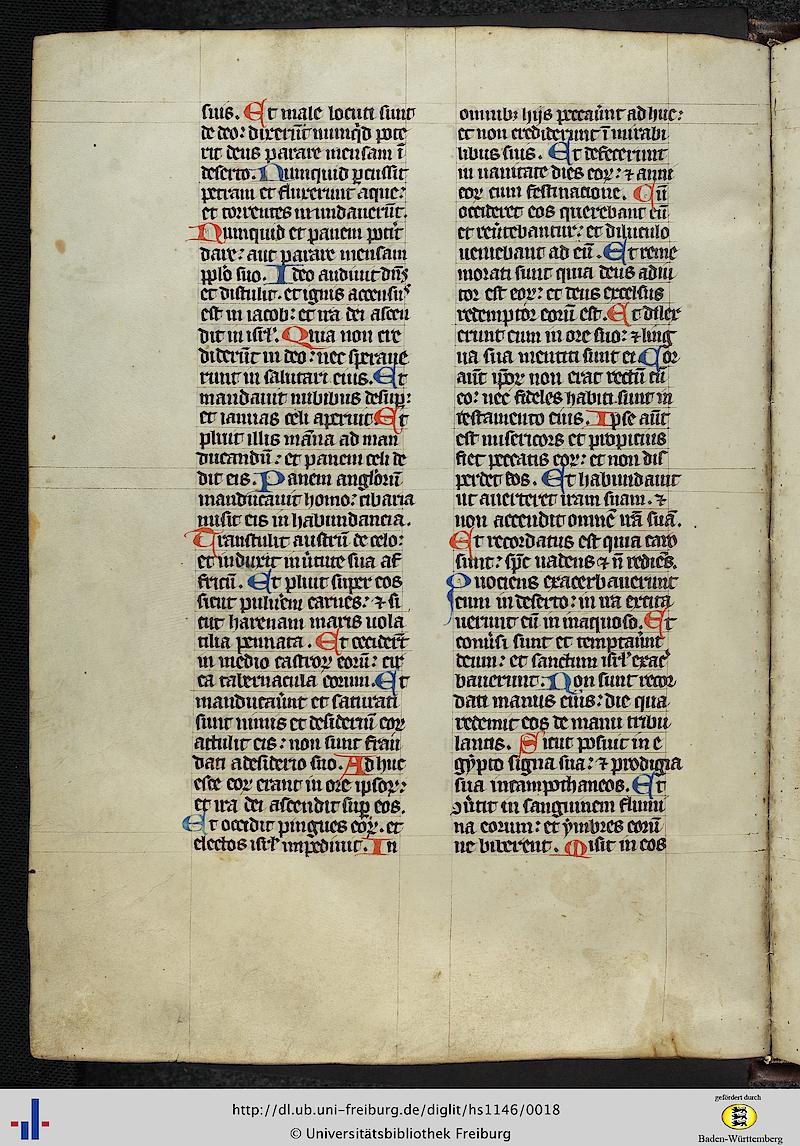 suis. Et male locuti sunt
de deo: dixerūt nunqͥd pote
rit deus parare mensam ī
deserto. Numquid ꝑcussit
petram et fluxerunt aque:
et torrentes inundauerūt.
Numquid et panem potit̄
dare: aut parare mensam
pp̄lo suo. Ideo audiuit dn̄s
et distulit. et ignis accensus
est in iacob: et ira dei ascen
dit in isrl̓. Quia non cre
diderūt in deo: nec speraue
runt in salutari eius. Et
mandauit nubibus desuꝑ:
et ianuas celi aperuit Et
pluit illis māna ad man
ducandū: et panem celi de
dit eis. Panem angloꝝ
manducauit homo: cibaria
misit eis in habundancia.
Transtulit austrū de celo:
et induxit in ùtute sua af
fricū. Et pluit super eos
sicut puluèm carnes: ⁊ si
cut harenam maris uola
tilia pennata. Et cecidert̄
in medio castroꝝ eorū: cir
ca tabernacula eorum. Et
manducaùnt et saturati
sunt nimis et desideriū eoꝝ
attulit eis: non sunt frau
dati a desiderio suo. Adhuc
esce eoꝝ erant in ore ipsoꝝ:
et ira dei ascendit suꝑ eos.
Et occidit pingues eoꝝ. et
electos isrl̓ impediuit. In
omnibꝫ hijs peccaùnt adhuc:
et non crediderunt ī mirabi
libus suis. Et defecerunt
in uanitate dies eoꝝ: ⁊ anni
eoꝝ cum festinacione. Cū
occideret eos querebant eū:
et reùtebantur: et diluculo
ueniebant ad eū. Et reme
morati sunt quia deus adiu
tor est eoꝝ: et deus excelsus
redemptor eorū est. Et dilex
erunt eum in ore suo: ⁊ ling
ua sua mentiti sunt ei Cor
aūt ip̄oꝝ non erat rectū cū
eo: nec fideles habiti sunt in
testamento eius. Ipse aūt
est misericors et propicius
fiet peccatis eoꝝ: et non dis
perdet eos. Et habundauit
ut auerteret iram suam. ⁊
non accendit omnē irā suā.
Et recordatus est quia caro
sunt: sp̄c uadens ⁊ n̄ rediēs.
Quociens exacerbauerunt
eum in deserto: in ira excita
uerunt eū in inaquoso. Et
conùsi sunt et temptaùnt
deum: et sanctum isrl̓ exac̓
bauerunt. Non sunt recor
dati manus eius: die qua
redemit eos de manu tribu
lantis. Sicut posuit in e
gẏpto signa sua: ⁊ prodigia
sua in campo thaneos. Et
ꝯùtit in sanguinem flumi
na eorum: et ẏmbres eorū
ne biberent. Misit in eos
http://dl.ub.uni-freiburg.de/diglit/hs1146/0018
© Universitätsbibliothek Freiburg
gefördert durch
Baden-Württemberg